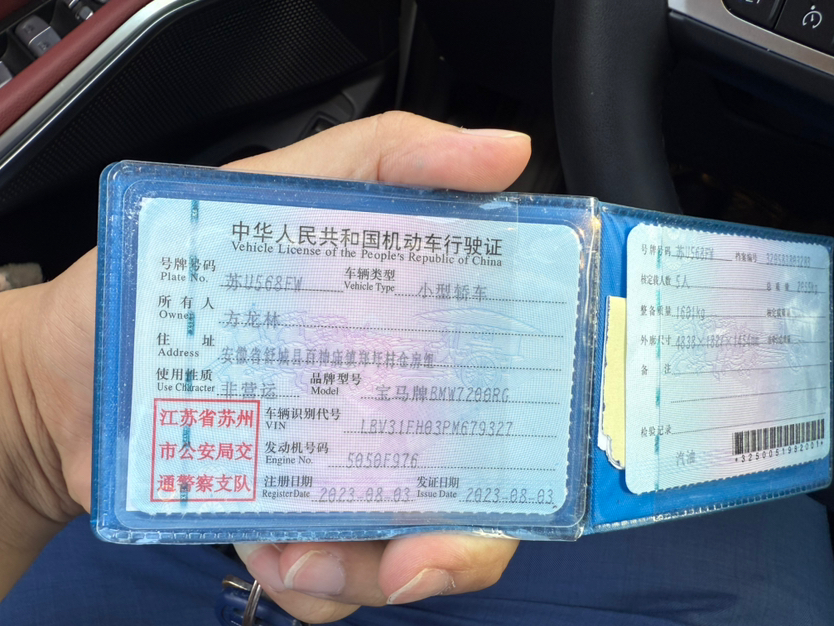 中华人民共和国机动车行驶证
Vehicle License of the People's Republic of China
号牌号码 苏U568FW 车辆类型 小型轿车
Plate No. Vehicle Type
所有人 方龙林
Owner
住址 安徽省舒城县百神庙镇郑圩村仓房组
Address
使用性质 非营运 品牌型号 宝马牌BMW7200RG
Use Character Model
江苏省苏州
市公安局交
通警察支队
车辆识别代号 LBV31FH03PM679327
VIN
发动机号码 5050F976
Engine No.
注册日期 2023.08.03 发证日期 2023.08.03
Register Date Issue Date
号牌号码 苏U568FW 档案编号
核定载人数 5人 总质量
整备质量 1601kg
外廓尺寸
备注
检验记录
汽油